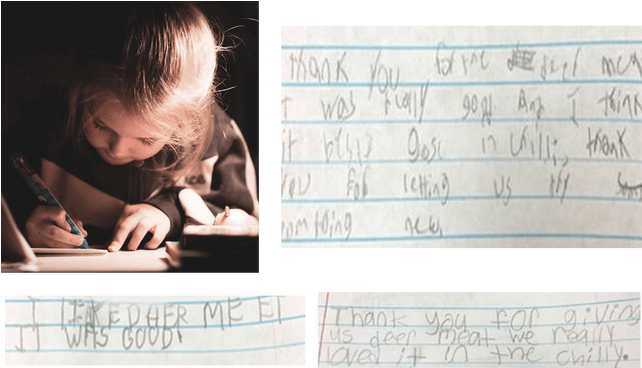 thank you for the deer mea
t was really good and I thin
it gose in chilli, thank
you for letting us try
omthing new
I LIKED HER ME ET
IT WAS GOOD!
Thank you for giving
us deer meat we really
loved it in the chilly.